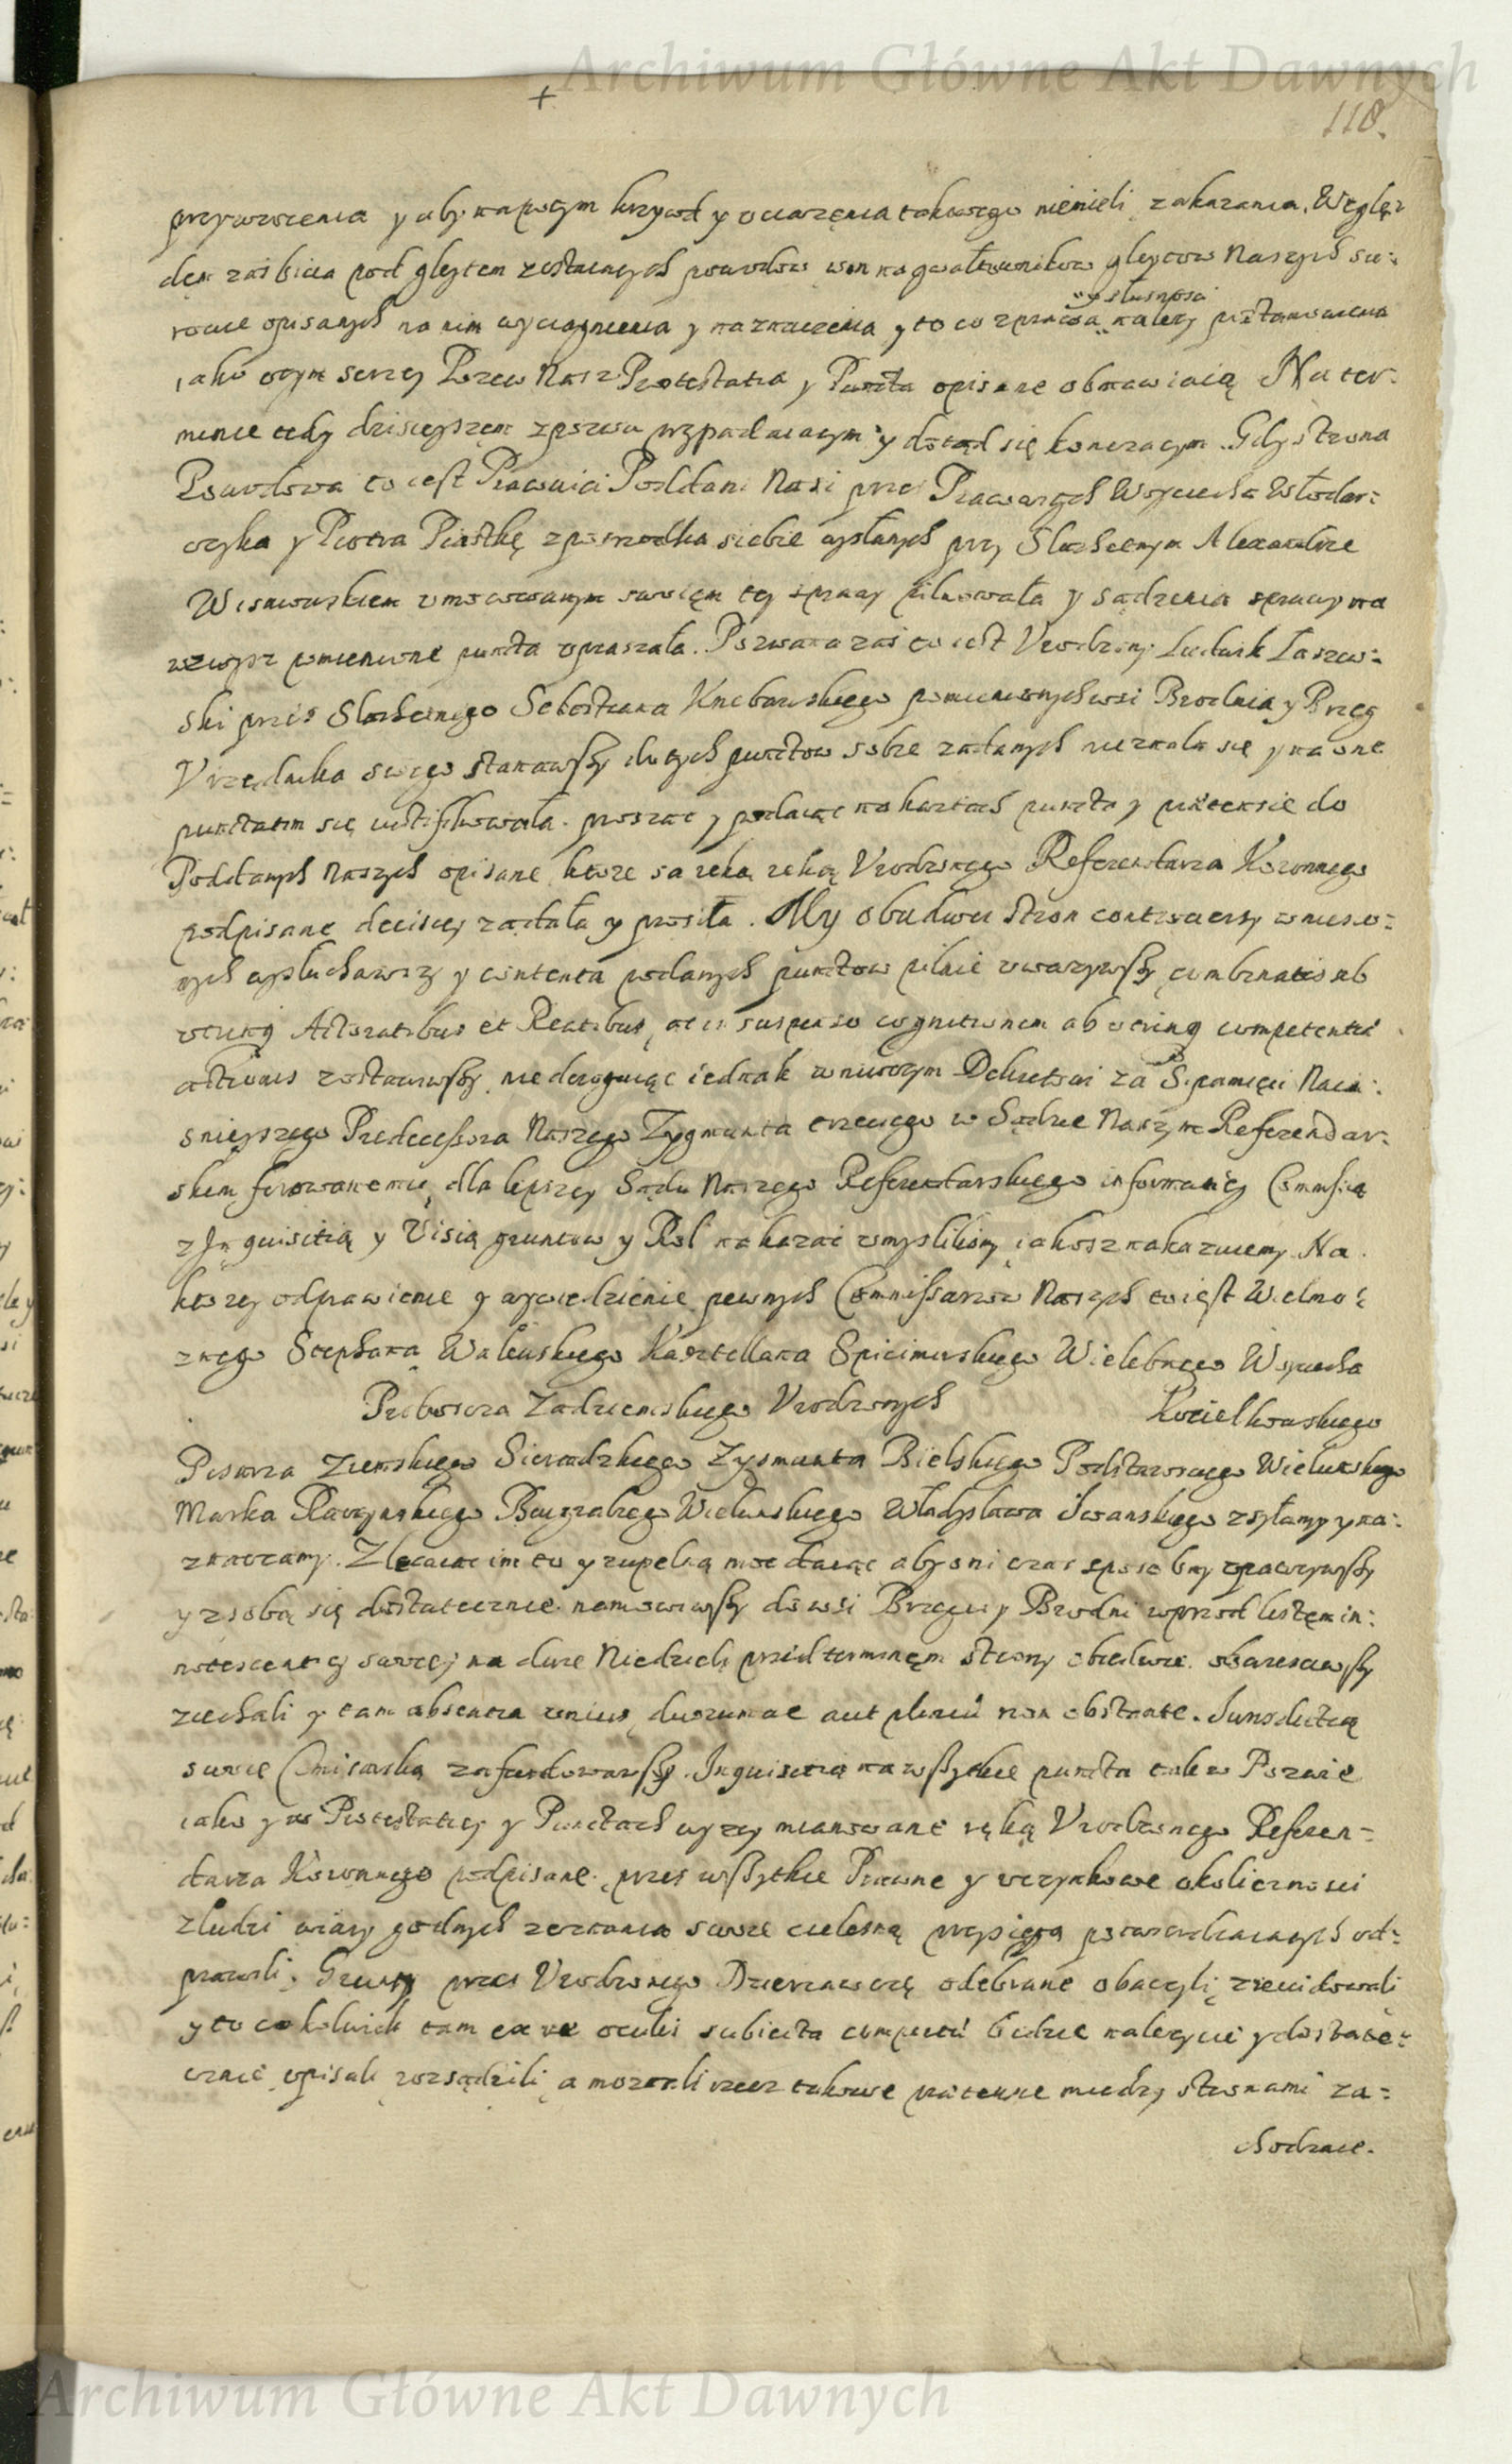 Archiwum Główne Akt Dawnych
118.
przywrocenia y aby napotym krzywd y uciązęnia takowego niemieli zakazania. Wzglę=
dem zaś bicia pod gleytem zostaiących powodow win na gwałtownikow gleytow Naszych su=
rowie opisanych na nim wyciągnienia y naznaczenia y to co z prawa należy postanowienia
y słusznosci
iako otym szerzey Pozew Nasz Protestatia y Puncta opisane obmawiaią Na ter=
minie tedy dzisieyszęm z pozwu przypadaiącym y dotąd się konczącym. Gdy strona
Powodowa to iest Pracowici Poddani Nasi przez Pracowitych Woyciecha Włodar=
czyka y Piotra Piastkę z posrzodka siebie wysłanych przy Slachetnym Alexandrze
Wisniowskiem umocowanym swoięm tey sprawy pilnowała y sądzenia sprawy na
wzwysz pomienione puncta upraszała. Pozwana zaś to iest Urodzony Ludwik Łaszew=
ski przez Slachetnego Sebestiana Knebowskiego pomienionych wsi Brodnia y Brzeg
Urzędnika swego stanawszy do tych punctow sobie zadanych nieznała się y na one
punctatim się iustifikowała. prosząc y podaiąc na kartach puncta y praetensie do
Poddanych Naszych opisane ktore są ręką Urodzonego Referendarza Koronnego
podpisane decisiey żądała y prosiła. My obudwu stron controversiy wniesio=
nych wysłuchawszy y contenta podanych punctow pilnie uważywszy combinatis ab
utrinq Actoratibus et Reatibus, ac in suspenso cognitionem ab utrinq competentis
actionis zostawiwszy nie deroguiąc iednak wniwczym Dekretowi za S. pamięci Naia=
snieyszego Predecessora Naszego Zygmunta trzeciego w Sądzie Naszym Referendar=
skim ferowanemu dla lepszey Sądu Naszego Referendarskiego informatiey Commissią
z Inquisitią y Visią gruntow y Rol nakazać umyslilismy iakosz nakazuiemy. Na
ktorey odprawienie y wywiedzienie pewnych Commissarzow Naszych to iest Wielmo=
żnego Stephana Walewskiego Kasztellana Spicimirskiego Wielebnego Woyciecha
Proboszcza Zadzimskiego Urodzonych Kocielkowskiego
Pisarza Ziemskiego Sieradzkiego Zygmunta Bielskiego Podstarosciego Wielunskiego
Marka Raczynskiego Burgrabiego Wielunskiego Władysława Iwanskiego zsyłamy y na=
znaczamy. Zlecaiąc im to y zupełną moc daiąc aby oni czas sposobny upatrzywszy
y z sobą się dostatecznie namowiwszy do wsi Brzegu y Brodni wprzod listęm in=
notescentiey swoiey na dwie Niedzieli przed terminęm strony obiedwie obwiesciwszy
ziechali y tam absentia unius, duorum ac aut plurium non obstante. Iurisdictią
swoię Commisarską zafundowawszy. Inquisitią na wszytkie puncta tak w Pozwie
iako y w Protestatiey y Punctach wyżey mianowane ręką Urodzonego Referen=
darza Koronnego podpisane przez wszytkie Prawne y uczynkowe okolicznosci
z ludzi wiary godnych zeznania swoie cielesną przysięgą potwierdzaiących od=
prawili. Grunty przez Urodzonego Dzierzawcę odebrane obaczyli zrewidowali
y to cokolwiek tam ex re oculis subiecta comperta będzie należycie y dostate=
cznie opisali rozsądzili, a mozeli rzecz takowe praetensie miedzy stronami za=
chodzące.
Archiwum Główne Akt Dawnych